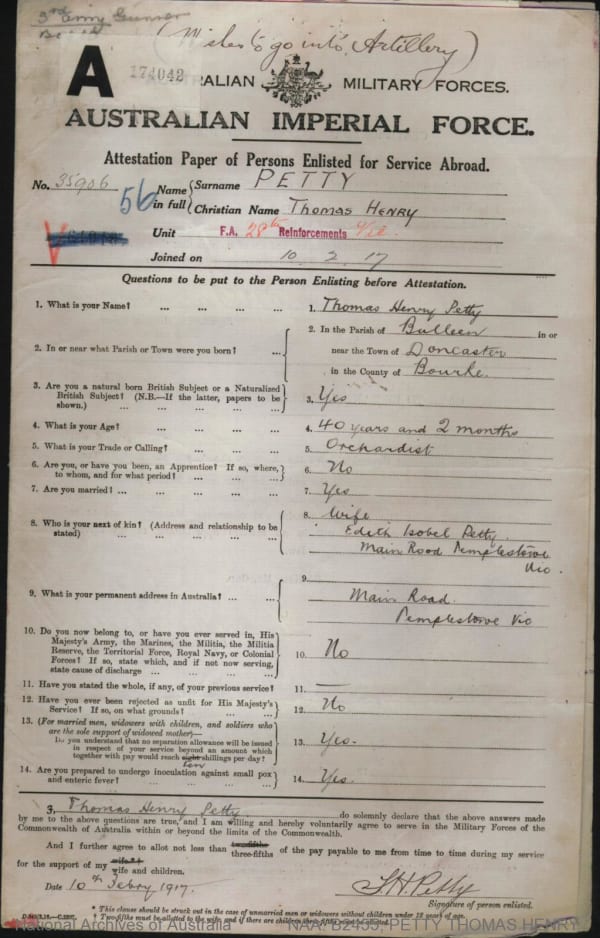 3rd Army Gunner
(Wishes to go into Artillery)
A
174042
RALIAN MILITARY FORCES.
AUSTRALIAN IMPERIAL FORCE.
Attestation Paper of Persons Enlisted for Service Abroad.
No. 35906 56 Name in full { Surname PETTY
Christian Name Thomas HENRY
Unit F.A. 28th Reinforcements
Joined on 10.2.17
Questions to be put to the Person Enlisting before Attestation.
1. What is your Name? ... ... ... ... 1. Thomas Henry Petty
2. In or near what Parish or Town were you born? ... 2. In the Parish of Bulleen in or
near the Town of Doncaster
in the County of Bourke.
3. Are you a natural born British Subject or a Naturalized
British Subject? (N.B.—If the latter, papers to be
shown.) ... ... ... ... ... 3. Yes
4. What is your Age? ... ... ... ... 4. 40 years and 2 months
5. What is your Trade or Calling? ... ... ... 5. Orchardist
6. Are you, or have you been, an Apprentice? If so, where,
to whom, and for what period? ... ... ... 6. No
7. Are you married? ... ... ... ... ... 7. Yes
8. Who is your next of kin? (Address and relationship to be
stated) ... ... ... ... 8. Wife
Edith Isobel Petty
Main Road Templestowe
Vic.
9. What is your permanent address in Australia? ... ... 9. Main Road.
Templestowe Vic
10. Do you now belong to, or have you ever served in, His
Majesty's Army, the Marines, the Militia, the Militia
Reserve, the Territorial Force, Royal Navy, or Colonial
Forces? If so, state which, and if not now serving,
state cause of discharge ... ... ... ... 10. No
11. Have you stated the whole, if any, of your previous service? 11. —
12. Have you ever been rejected as unfit for His Majesty's
Service? If so, on what grounds? ... ... ... 12. No
13. (For married men, widowers with children, and soldiers who
are the sole support of widowed mother)—
Do you understand that no separation allowance will be issued
in respect of your service beyond an amount which
together with pay would reach eight ten shillings per day? 13. Yes.
14. Are you prepared to undergo inoculation against small pox
and enteric fever? ... ... ... ... 14. Yes.
I, Thomas Henry Petty do solemnly declare that the above answers made
by me to the above questions are true, and I am willing and hereby voluntarily agree to serve in the Military Forces of the
Commonwealth of Australia within or beyond the limits of the Commonwealth.
And I further agree to allot not less than two-fifths three-fifths of the pay payable to me from time to time during my service
for the support of my wife*† wife and children.
Date 10th Febry 1917. T H Petty
Signature of person enlisted.
* This clause should be struck out in the case of unmarried men or widowers without children under 18 years of age.
† Two-fifths must be allotted to the wife, and if there are children three-fifths must be allotted.
National Archives of Australia NAA: B2455, PETTY THOMAS HENRY